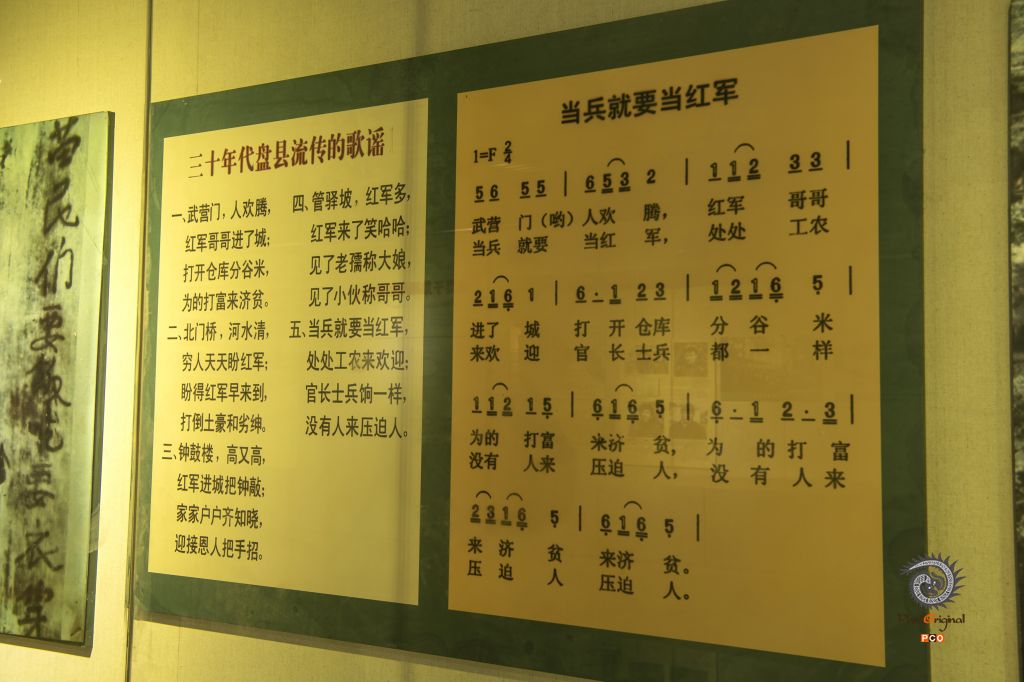 苗民们要救苗要长军
三十年代盘县流传的歌谣
一、武营门，人欢腾，
红军哥哥进了城；
打开仓库分谷米，
为的打富来济贫。
二、北门桥，河水清，
穷人天天盼红军；
盼得红军早来到，
打倒土豪和劣绅。
三、钟鼓楼，高又高，
红军进城把钟敲；
家家户户齐知晓，
迎接恩人把手招。
四、管驿坡，红军多，
红军来了笑哈哈；
见了老孺称大娘，
见了小伙称哥哥。
五、当兵就要当红军，
处处工农来欢迎；
官长士兵饷一样，
没有人来压迫人。
当兵就要当红军
1=F 2/4
56 55 | 653 2 | 112 33 |
武营 门（哟）人欢 腾， 红军 哥哥
当兵 就要 当红 军， 处处 工农
216 1 | 6·1 23 | 1216 5 |
进了 城 打 开 仓库 分 谷 米
来欢 迎 官 长 士兵 都 一 样
112 15 | 616 5 | 6·1 2·3 |
为的 打富 来济 贫， 为 的 打 富
没有 人来 压迫 人， 没 有 人 来
2316 5 | 616 5 |
来 济 贫 来济 贫。
压 迫 人 压迫 人。
Original
PCO